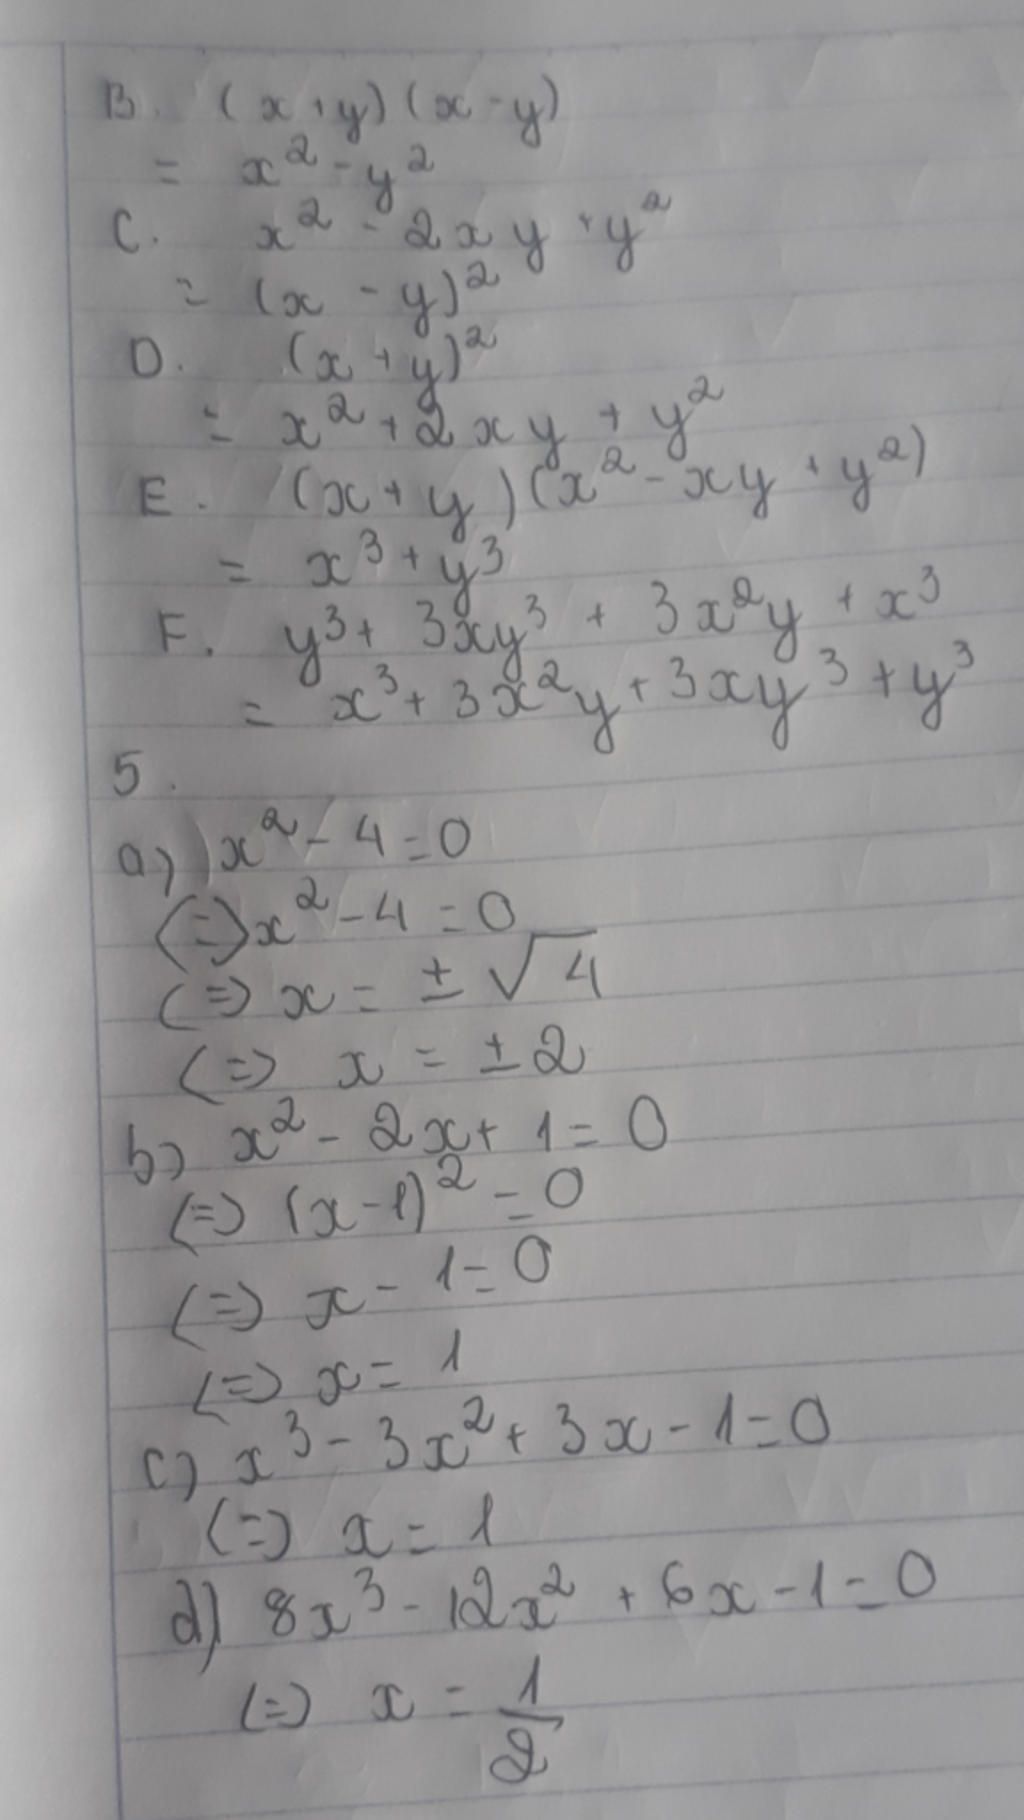 B. (x+y)(x-y)
= x² - y²
C. x² - 2xy + y²
= (x - y)²
D. (x + y)²
= x² + 2xy + y²
E. (x+y)(x² - xy + y²)
= x³ + y³
F. y³ + 3xy³ + 3x²y + x³
= x³ + 3x²y + 3xy³ + y³
5.
a) x² - 4 = 0
(=) x² - 4 = 0
(=) x = ± √4
(=) x = ± 2
b) x² - 2x + 1 = 0
(=) (x-1)² = 0
(=) x - 1 = 0
(=) x = 1
c) x³ - 3x² + 3x - 1 = 0
(=) x = 1
d) 8x³ - 12x² + 6x - 1 = 0
(=) x = 1/2